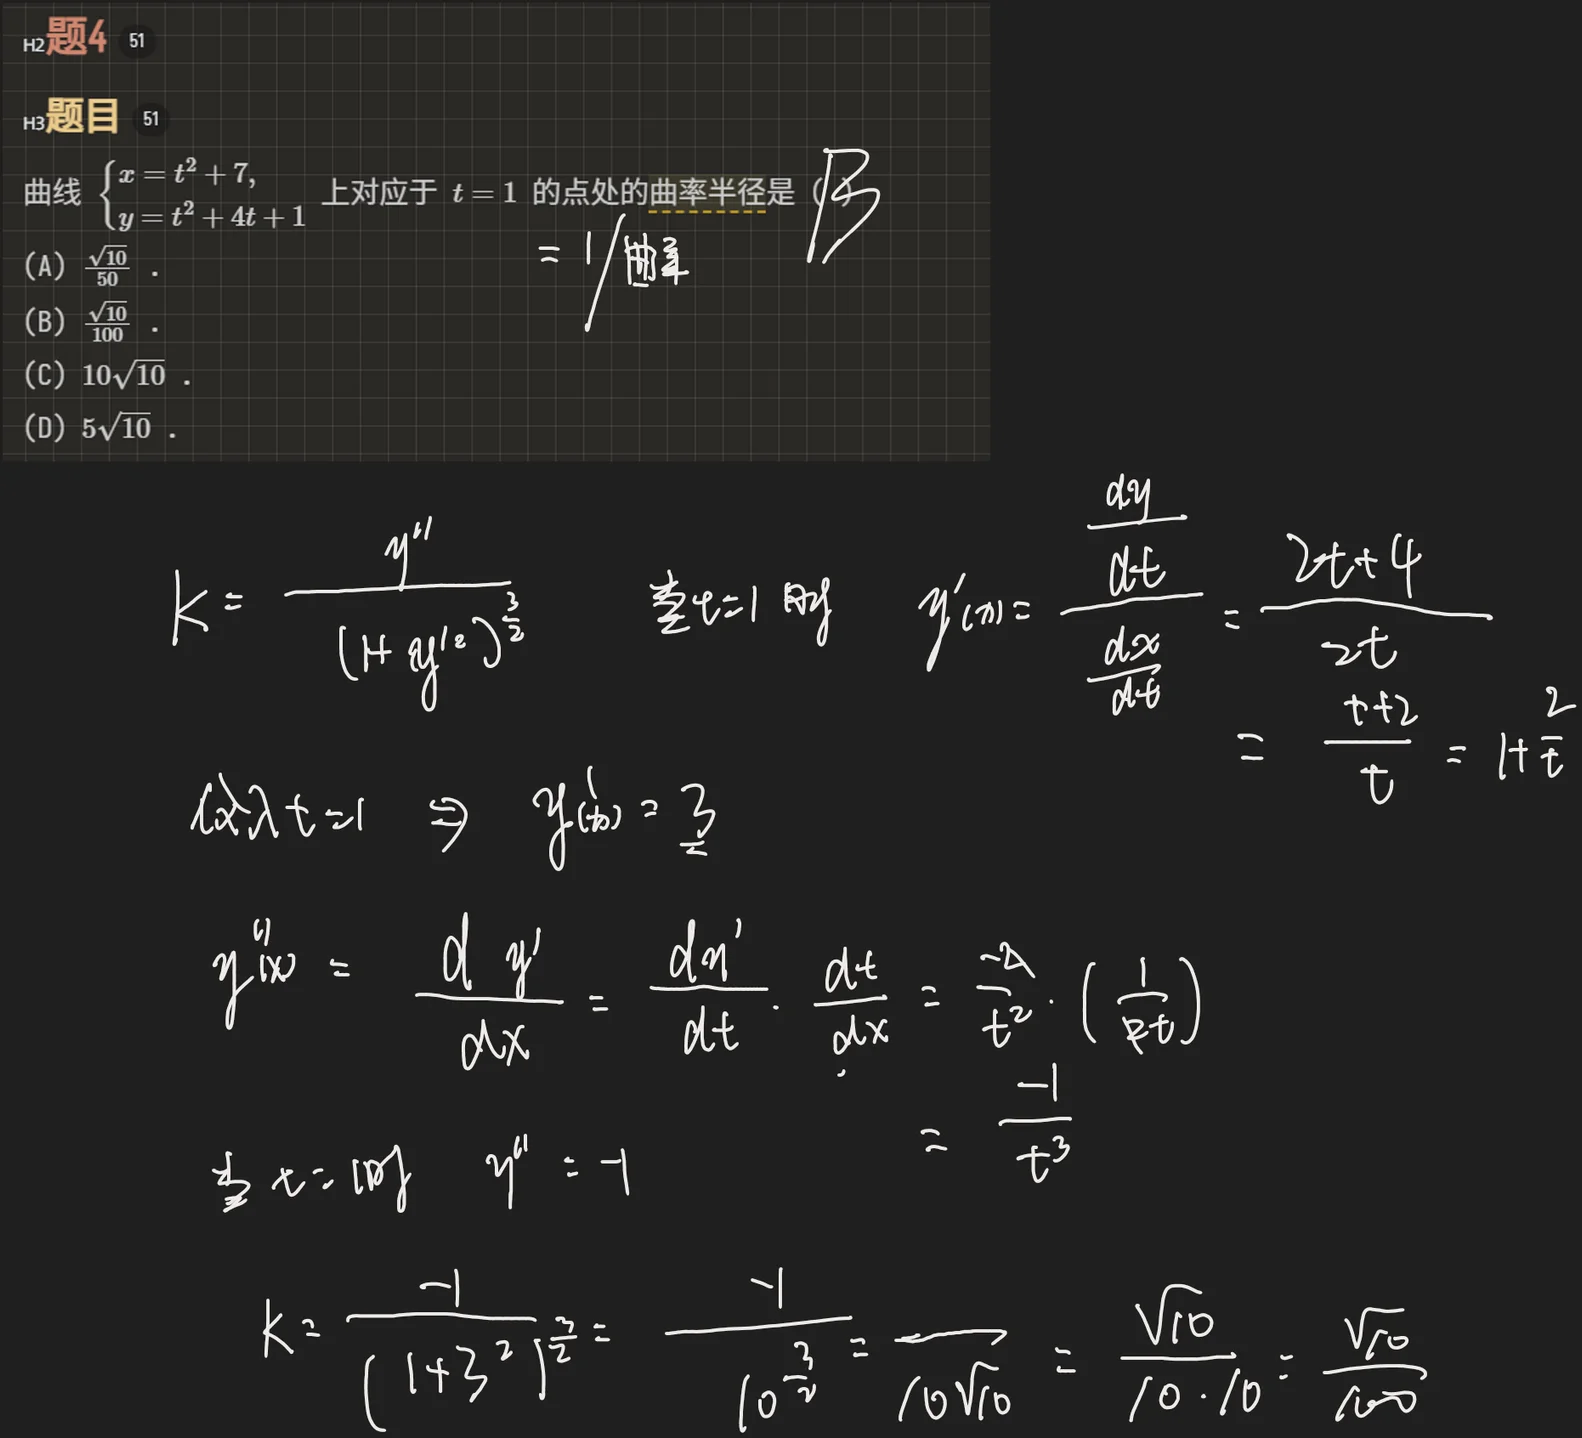 H2题4 51
H3题目 51
曲线 {x = t² + 7, y = t² + 4t + 1 上对应于 t = 1 的点处的曲率半径是 ( ) B
= 1/曲率
(A) √10/50 .
(B) √10/100 .
(C) 10√10 .
(D) 5√10 .
k = y''/(1+y'²)^(3/2) 当t=1时 y'(x) = (dy/dt)/(dx/dt) = (2t+4)/(2t)
= (t+2)/t = 1+2/t
代入t=1 ⇒ y'(x) = 3
y''(x) = d y'/dx = dy'/dt · dt/dx = -2/t² · (1/2t)
= -1/t³
当t=1时 y'' = -1
k = -1/(1+3²)^(3/2) = -1/10^(3/2) = —/10√10 = √10/10·10 = √10/100